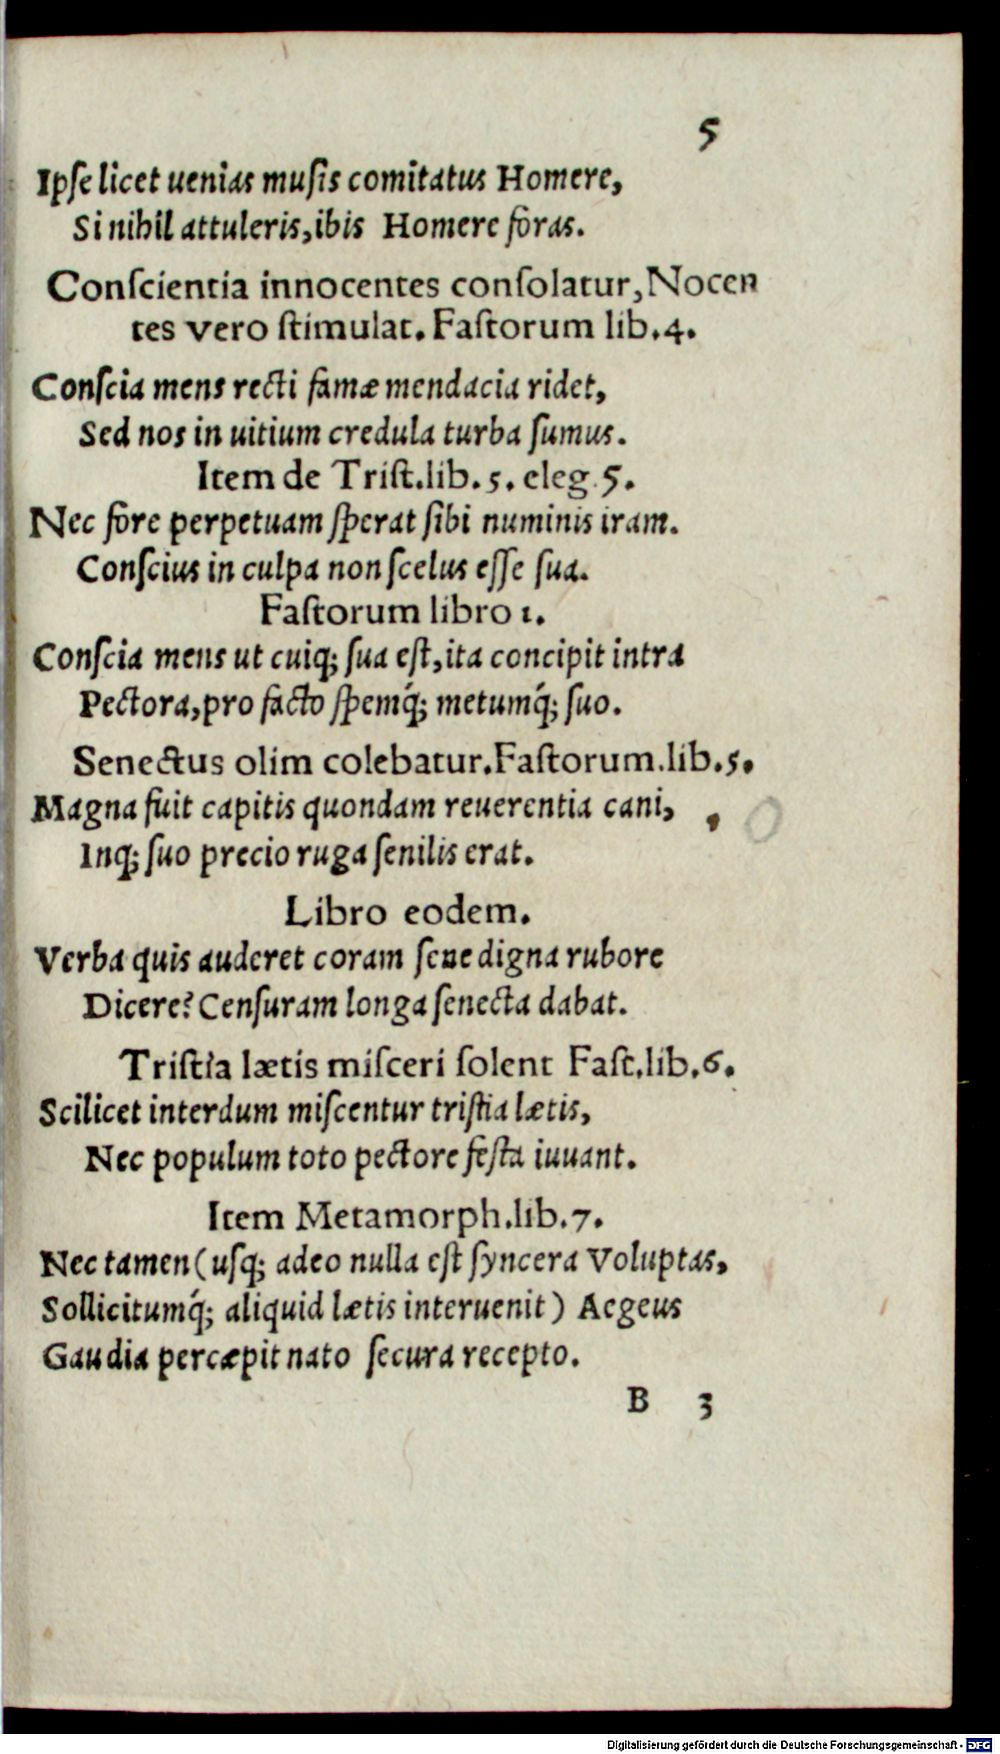 5
Ipſe licet uenias muſis comitatus Homere,
Si nihil attuleris, ibis Homere foras.
Conſcientia innocentes conſolatur, Nocen
tes vero ſtimulat. Faſtorum lib. 4.
Conſcia mens recti famæ mendacia ridet,
Sed nos in uitium credula turba ſumus.
Item de Triſt. lib. 5. eleg. 5.
Nec fore perpetuam ſperat ſibi numinis iram.
Conſcius in culpa non ſcelus eſſe ſua.
Faſtorum libro 1.
Conſcia mens ut cuiq; ſua eſt, ita concipit intra
Pectora, pro facto ſpemq́; metumq́; ſuo.
Senectus olim colebatur. Faſtorum. lib. 5.
Magna fuit capitis quondam reuerentia cani,
Inq; ſuo precio ruga ſenilis erat.
Libro eodem.
Verba quis auderet coram ſene digna rubore
Dicere? Cenſuram longa ſenecta dabat.
Triſtia lætis miſceri ſolent Faſt. lib. 6.
Scilicet interdum miſcentur triſtia lætis,
Nec populum toto pectore feſta iuuant.
Item Metamorph. lib. 7.
Nec tamen (uſq; adeo nulla eſt ſyncera Voluptas,
Sollicitumq́; aliquid lætis interuenit) Aegeus
Gaudia percæpit nato ſecura recepto.
B 3
Digitalisierung gefördert durch die Deutsche Forschungsgemeinschaft - DFG